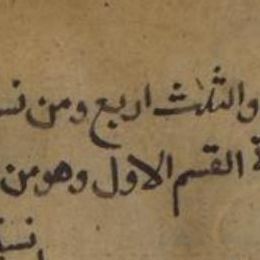 والثلث اربع ومن نسـ
ـة القسم الاول وهو من